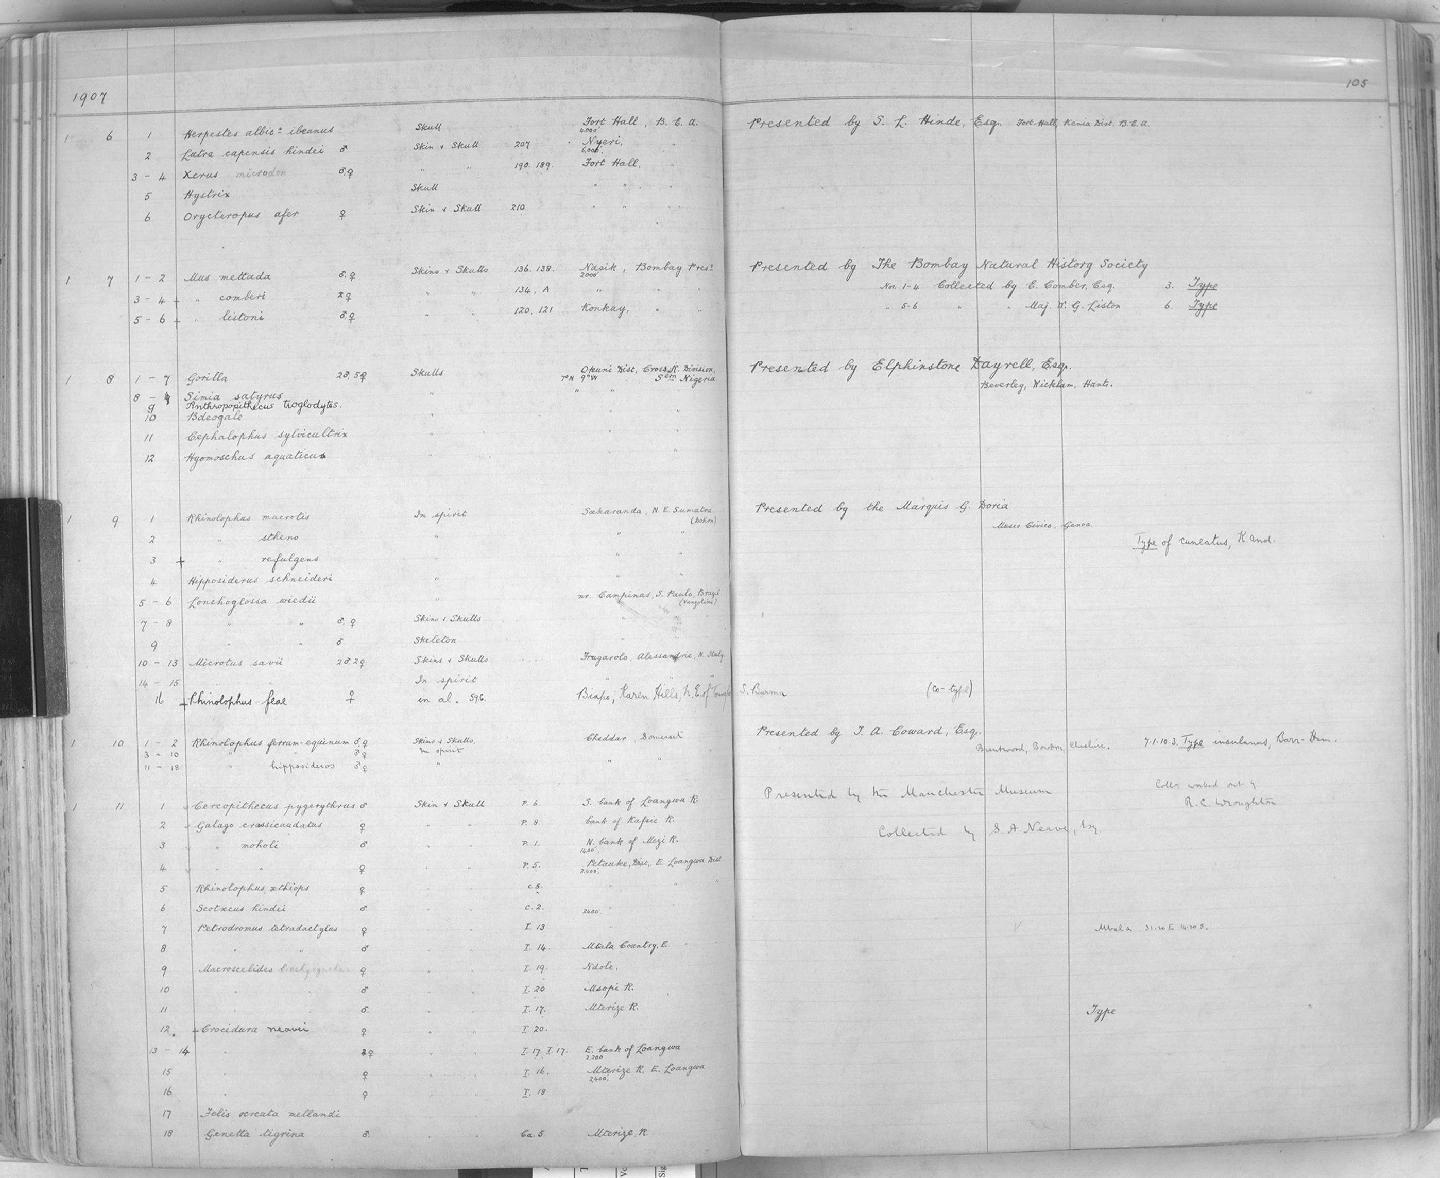 1907
105
1 6 1 Herpestes albic. ibeanus Skull Fort Hall, B. E. A. Presented by S. L. Hinde, Esq. Fort Hall, Kenia Dist. B.E.A.
4000'
2 Lutra capensis hindei ♂ Skin & Skull 207 Nyeri,
6000'
3 - 4 Xerus microdon ♂,♀ " " 190. 189. Fort Hall,
5 Hystrix Skull " "
6 Orycteropus afer ♀ Skin & Skull 210 " "
1 7 1 - 2 Mus mettada ♂,♀ Skins & Skulls 136. 138. Nasik, Bombay Presy Presented by The Bombay Natural History Society
2000'
3 - 4 + " comberi ♀ " " 134, A " Nos. 1-4 Collected by E. Comber, Esq. 3. Type
5 - 6 + " listoni ♂,♀ " " 120, 121 Konkay, " " 5-6 " " Maj. W. G. Liston 6. Type
1 8 1 - 7 Gorilla 2♂, 5♀ Skulls Opuni Dist, Cross R. Division, Presented by Elphinstone Dayrell, Esq.
7°N 9°W Sern Nigeria
Beverley, Wickham, Hants.
8 - Simia satyrus "
9 Anthropopithecus troglodytes.
10 Bdeogale "
11 Cephalophus sylvicultrix "
12 Hyomoschus aquaticus "
1 9 1 Rhinolophus macrotis In spirit Soekaranda, N. E. Sumatra Presented by the Marquis G. Doria
(Dohrn)
Museo Civico, Genoa
2 " stheno " " "
Type of cuneatus, K. And.
3 + " refulgens " "
4 Hipposiderus schneideri " "
5 - 6 Lonchoglossa wiedii " nr. Campinas, S. Paulo, Brazil
7 - 8 " " ♂,♀ Skins & Skulls
9 " " ♂ Skeleton
10 - 13 Microtus savii 2♂ 2♀ Skins & Skulls Frugarolo, Alessandria, N. Italy
14 - 15 In spirit "
16 + Rhinolophus feae ♀ in al. Biapo, Karen Hills, N.E. of S. Burma (co-type)
1 10 1 - 2 Rhinolophus ferrum-equinum ♂,♀ Skins & Skulls Cheddar, Somerset Presented by T. A. Coward, Esq.
3 - 10 " " ♂,♀ In spirit
Brentwood, Bowdon, Cheshire. 7.1.10.3. Type insulanus, Barr-Ham.
11 - 18 " hipposideros ♂♀ " " "
1 11 1 Cercopithecus pygerythrus ♂ Skin & Skull P. 6 S. bank of Loangwa R. Presented by the Manchester Museum
Colln worked out by
R. C. Wroughton
2 Galago crassicaudatus ♀ " " P. 8. bank of Kafue R. Collected by S. A. Neave, Esq.
3 " moholi ♂ " " P. 1. N. bank of Mezi R.
1400'
4 " " ♀ " " P. 5. Petauke, Dist, E. Loangwa Dist
2400.
5 Rhinolophus æthiops ♀ " " C. 8. " "
6 Scotæcus hindei ♂ " " C. 2. 2400.
7 Petrodromus tetradactylus ♀ " " I. 13
Mbala 31.20 E 14.20 S.
8 " " ♂ " " I. 14. Mbala Country, E
9 Macroscelides ♀ " " I. 19. Ndole,
10 " " ♂ " " I. 20 Msopi R.
11 " " ♂ " " I. 17. Mterize R.
Type
12 + Crocidura neavei ♀ " " I. 20.
13 - 14 " ♀ I. 17, I. 17. E. bank of Loangwa
2200
15 " ♀ " " I. 16. Mterize R. E. Loangwa
2400.
16 " ♀ " " I. 18
17 Felis ocreata mellandi
18 Genetta tigrina ♂ " " Ca. 5 Mterize. R